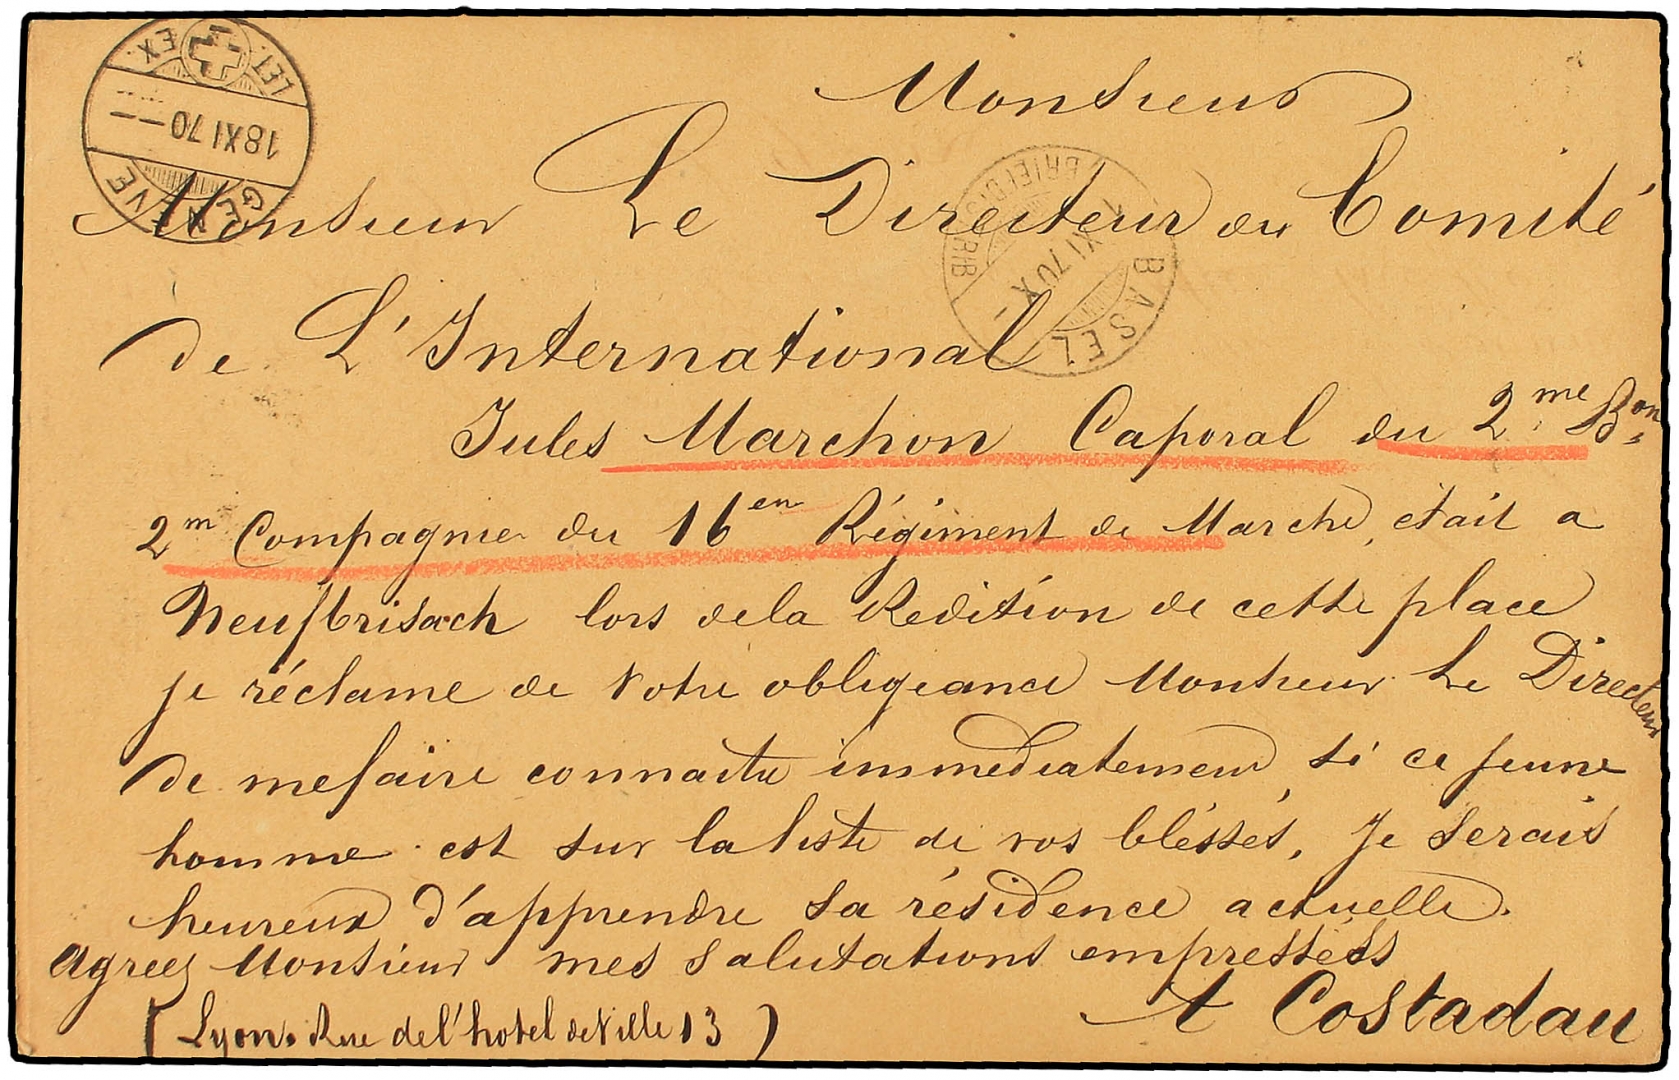 LET. EX.
18 XI 70
GENÈVE
BRIEFDISTRIB
XI 70 X
BASEL
Monsieur
Monsieur Le Directeur du Comité
de L'International
Jules Marchon Caporal du 2.me Bon
2m Compagnie du 16en Régiment de Marche, était a
Neufbrisach lors dela Redition de cette place
je réclame de Votre obligeance Monsieur Le Directeur
de mefaire connaitre immediatement si ce jeune
homme est sur la liste de vos bléssés, Je Serais
heureux d'apprendre sa résidence actuelle.
Agreez Monsieur mes Salutations empressées
A Costadau
(Lyon. Rue del'hotel deVille 13)